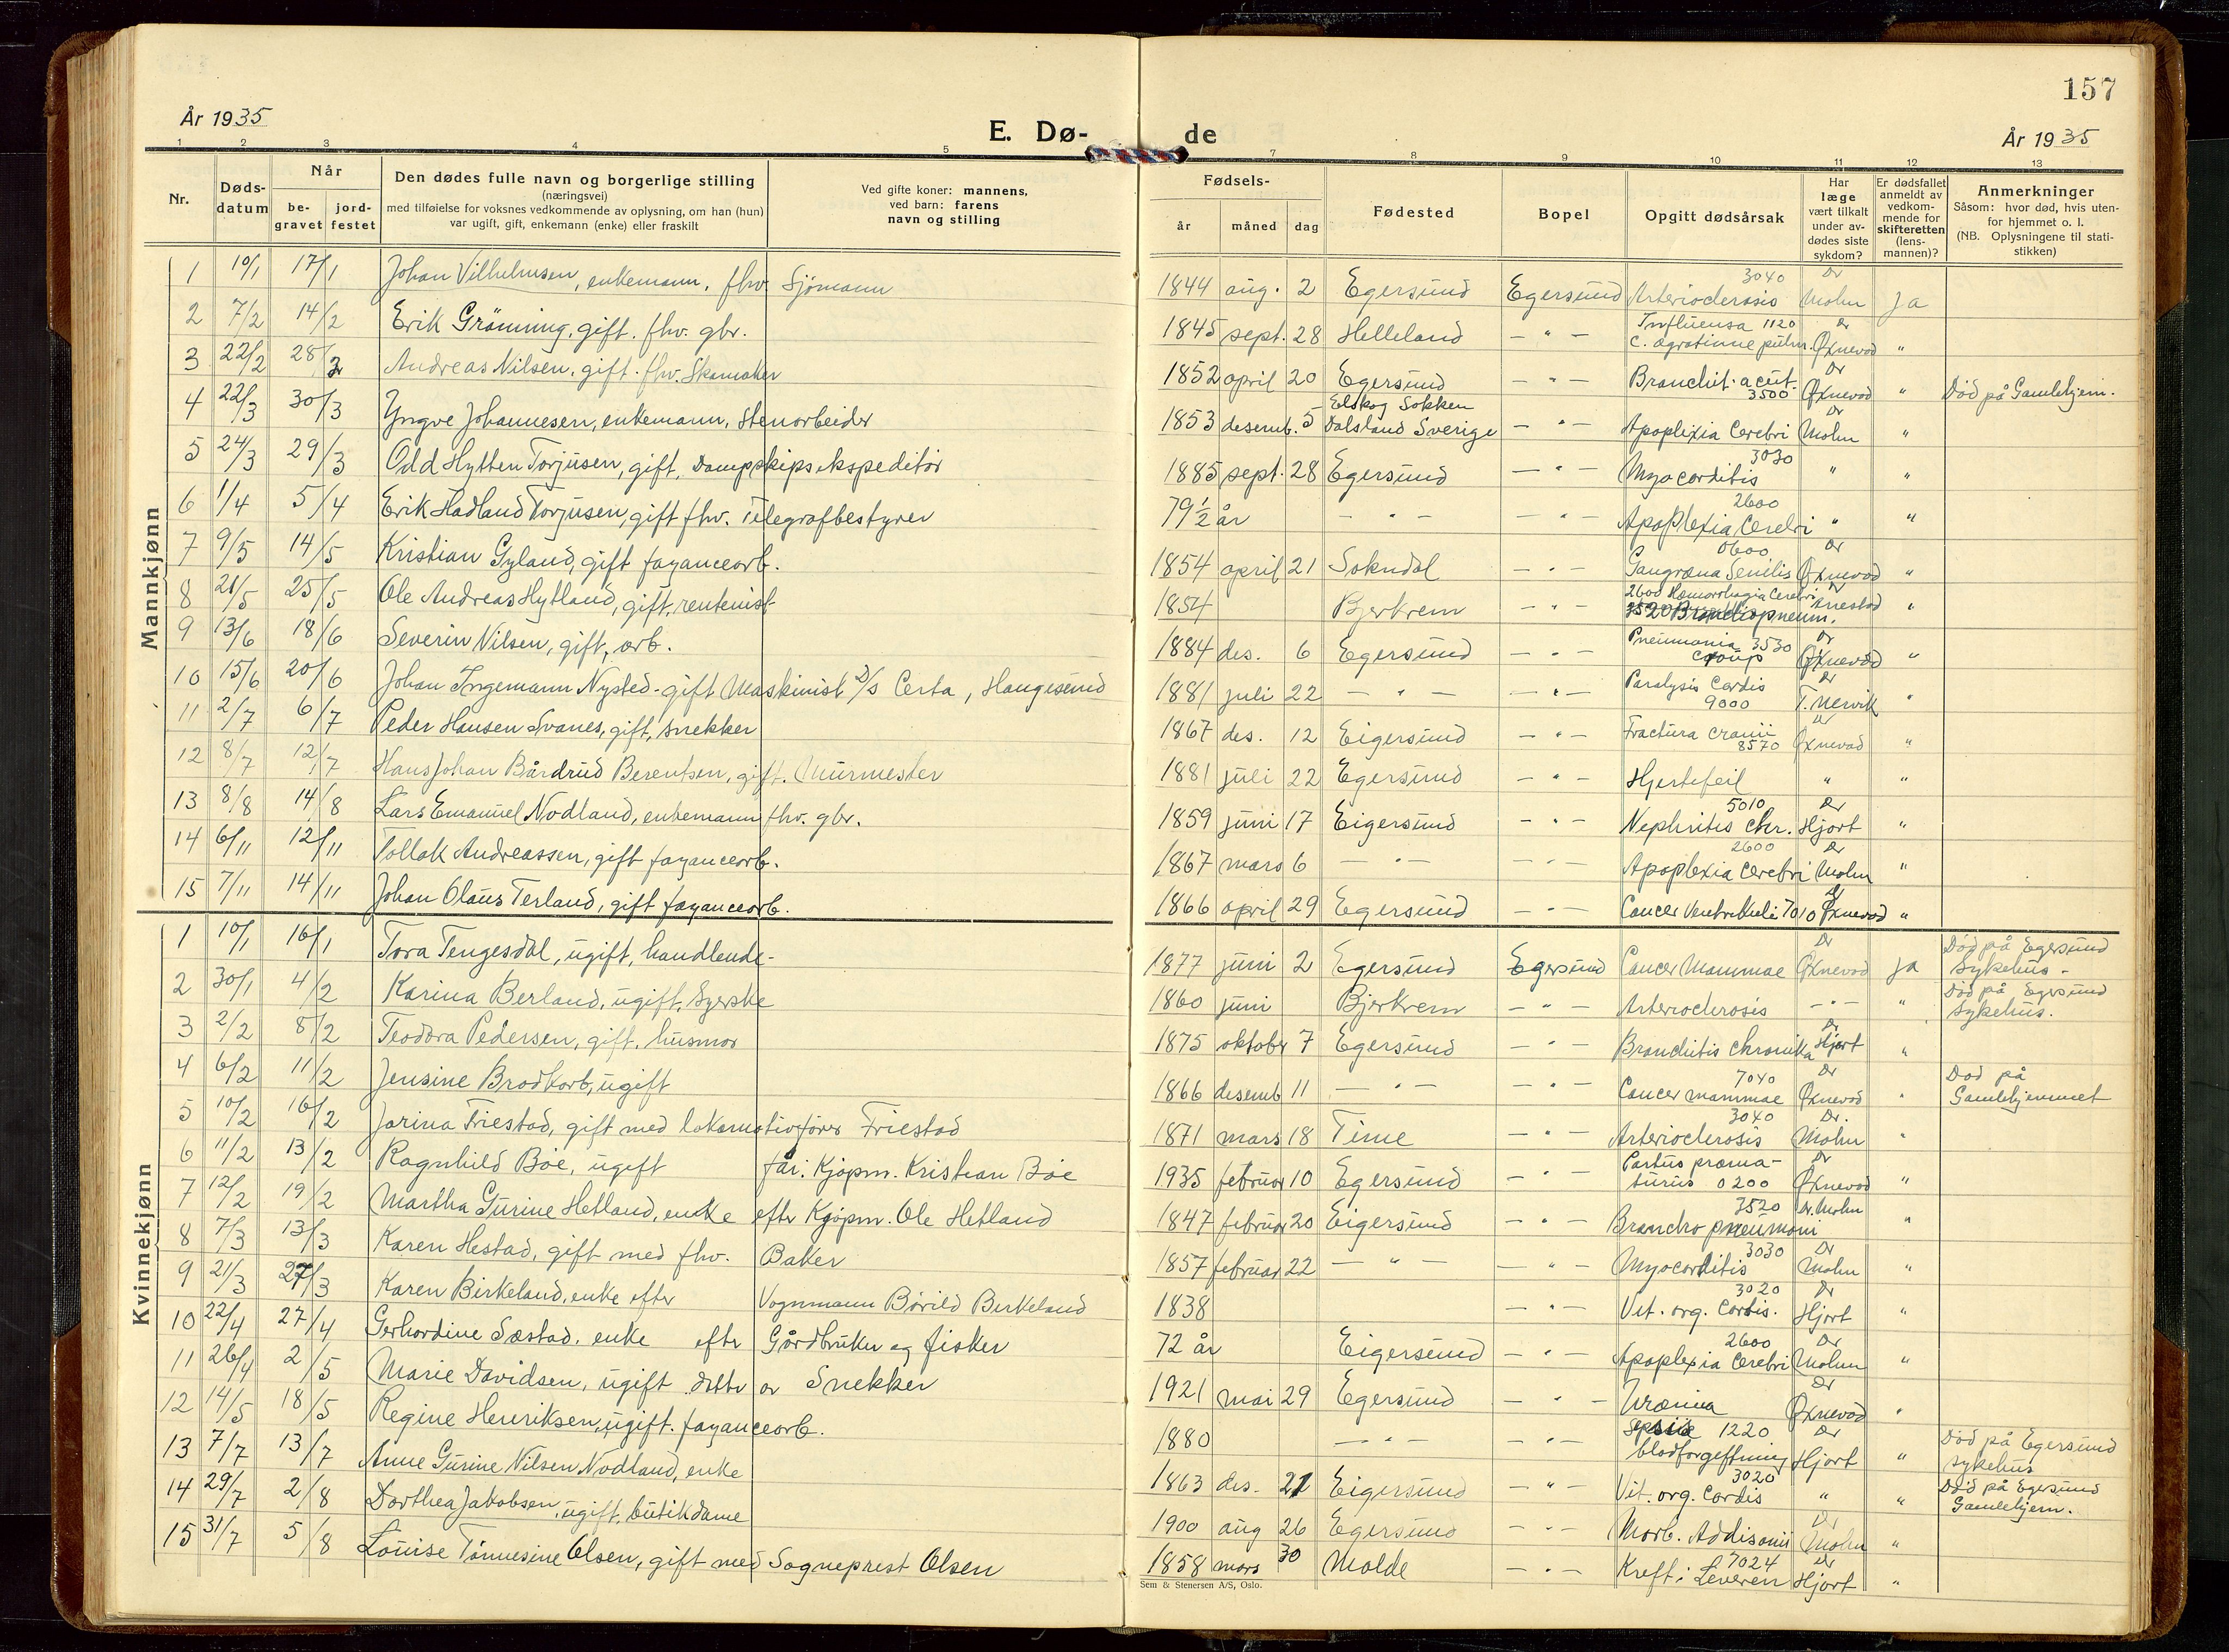 157
År 1935
E. Dø-
de
År 1935
1 2 3 4 5
7 8 9 10 11 12 13
Nr.
Døds-
datum
Når
be-
gravet
jord-
festet
Den dødes fulle navn og borgerlige stilling
(næringsvei)
med tilføielse for voksnes vedkommende av oplysning, om han (hun)
var ugift, gift, enkemann (enke) eller fraskilt
Ved gifte koner: mannens,
ved barn: farens
navn og stilling
Fødsels-
år
måned
dag
Fødested
Bopel
Opgitt dødsårsak
Har
læge
vært tilkalt
under av-
dødes siste
sykdom?
Er dødsfallet
anmeldt av
vedkom-
mende for
skifteretten
(lens-
mannen)?
Anmerkninger
Såsom: hvor død, hvis uten-
for hjemmet o. l.
(NB. Oplysningene til stati-
stikken)
Mannkjønn
1 10/1 17/1 Johan Vilhelmsen, enkemann, fhv. Sjömann 1844 aug. 2 Egersund Egersund Arterioclerosis 3040 Dr Mohn ja
2 7/2 14/2 Erik Grönning, gift. fhv. gbr. 1845 sept. 28 Helleland — " — Influensa 1120 Dr Øxnevad "
3 22/2 28/2 Andreas Nilsen, gift. fhv. Skomaker 1852 april 20 Egersund — " — Bronchit. acut. 3500 Dr Øxnevad " Död på Gamlehjem.
4 22/3 30/3 Yngve Johannesen, enkemann, Stenarbeider 1853 desemb. 5 Elskog Sokken Dalsland Sverige — " — Apoplexia Cerebri Dr Mohn "
5 24/3 29/3 Odd Hytten Torjusen, gift. Dampskipsekspeditör 1885 sept. 28 Egersund — " — Myocarditis 3030 " "
6 1/4 5/4 Erik Hadland Torjusen, gift fhv. Telegrafbestyrer 79 1/2 år — " — — " — Apoplexia Cerebri 2600 " "
7 9/5 14/5 Kristian Gyland, gift fayancearb. 1854 april 21 Sokndal — " — Gangræna Senilis 0600 Dr Øxnevad "
8 21/5 25/5 Ole Andreas Hytland, gift, rentenist 1854 Bjerkrem — " — 2600 Hæmorrhagia Cerebri 3520 Bronchopneum. "
9 13/6 18/6 Severin Nilsen, gift, arb. 1884 des. 6 Egersund — " — Pneumonia 3530 croup Dr Øxnevad "
10 15/6 20/6 Johan Ingemann Nysted - gift Maskinist D/S Certa, Haugesund 1881 juli 22 — " — — " — Paralysis Cordis 9000 Dr T. Nervik "
11 2/7 6/7 Peder Hansen Svanes, gift, snekker 1867 des. 12 Eigersund — " — Fractura cranii 8570 Dr Øxnevad "
12 8/7 12/7 Hans Johan Bårdrud Berentsen, gift. Murmester 1881 juli 22 Egersund — " — Hjertefeil " "
13 8/8 14/8 Lars Emanuel Nodland, enkemann fhv. gbr. 1859 juni 17 Eigersund — " — Nephritis chr. 5010 Dr Hjort "
14 6/11 12/11 Tollak Andreassen, gift fayancearb. 1867 mars 6 — " — — " — Apoplexia cerebri 2600 Dr Mohn "
15 7/11 14/11 Johan Olaus Terland, gift fayancearb. 1866 april 29 Egersund — " — Cancer Ventrikuli 7010 Dr Øxnevad "
Kvinnekjønn
1 10/1 16/1 Tora Tengesdal, ugift, handlende - 1877 juni 2 Egersund Egersund Cancer Mammae Dr Øxnevad ja Död på Egersund Sykehus -
2 30/1 4/2 Karina Berland, ugift, Syerske 1860 juni Bjerkrem — " — Arterioclerosis — " — " Död på Egersund Sykehus.
3 2/2 8/2 Teodora Pedersen, gift, husmor 1875 oktober 7 Egersund — " — Bronchitis chronika Dr Hjort "
4 6/2 11/2 Jensine Brodkorb, ugift 1866 desemb 11 — " — — " — Cancer mammae 7040 Dr Øxnevad " Död på Gamlehjemmet
5 10/2 16/2 Jorina Friestad, gift med lokomotivförer Friestad 1871 mars 18 Time — " — Arterioclerosis 3040 Dr. Mohn "
6 11/2 13/2 Ragnhild Böe, ugift far: Kjöpm. Kristian Böe 1935 februar 10 Egersund — " — Partus præma- turus 0200 Dr Øxnevad "
7 12/2 19/2 Martha Gurine Hetland, enke efter Kjöpm. Ole Hetland 1847 februar 20 Eigersund — " — Broncho pneumoni 3520 Dr. Mohn "
8 7/3 13/3 Karen Hestad, gift med fhv. Baker 1857 februar 22 — " — — " — Myocarditis 3030 Dr Mohn "
9 21/3 27/3 Karen Birkeland, enke efter Vognmann Bårild Birkeland 1838 — " — Vit. org. Cordis. 3020 Dr Hjort "
10 22/4 27/4 Gerhardine Sæstad. enke efter Gårdbruker og fisker 72 år Eigersund — " — Apoplexia Cerebri 2600 Dr Mohn "
11 26/4 2/5 Marie Davidsen, ugift datter av Snekker 1921 mai 29 Egersund — " — Uræmia Dr Øxnevad "
12 14/5 18/5 Regine Henriksen, ugift. fayancearb. 1880 — " — — " — Sepsis 1220 blodforgiftning Dr Hjort " Död på Egersund sykehus
13 7/7 13/7 Anne Gurine Nilsen Nodland, enke 1863 des. 21 Eigersund — " — Vit. org. Cordis 3020 " " Död på Egersund Gamlehjem.
14 29/7 2/8 Dorthea Jakobsen, ugift, butikdame 1900 aug 26 Egersund — " — Morb. Addisonii Dr Mohn "
15 31/7 5/8 Louise Tönnesine Olsen, gift med Sogneprest Olsen 1858 mars 30 Molde — " — Kreft i Leveren 7024 Dr Hjort "
Sem & Stenersen A/S, Oslo.